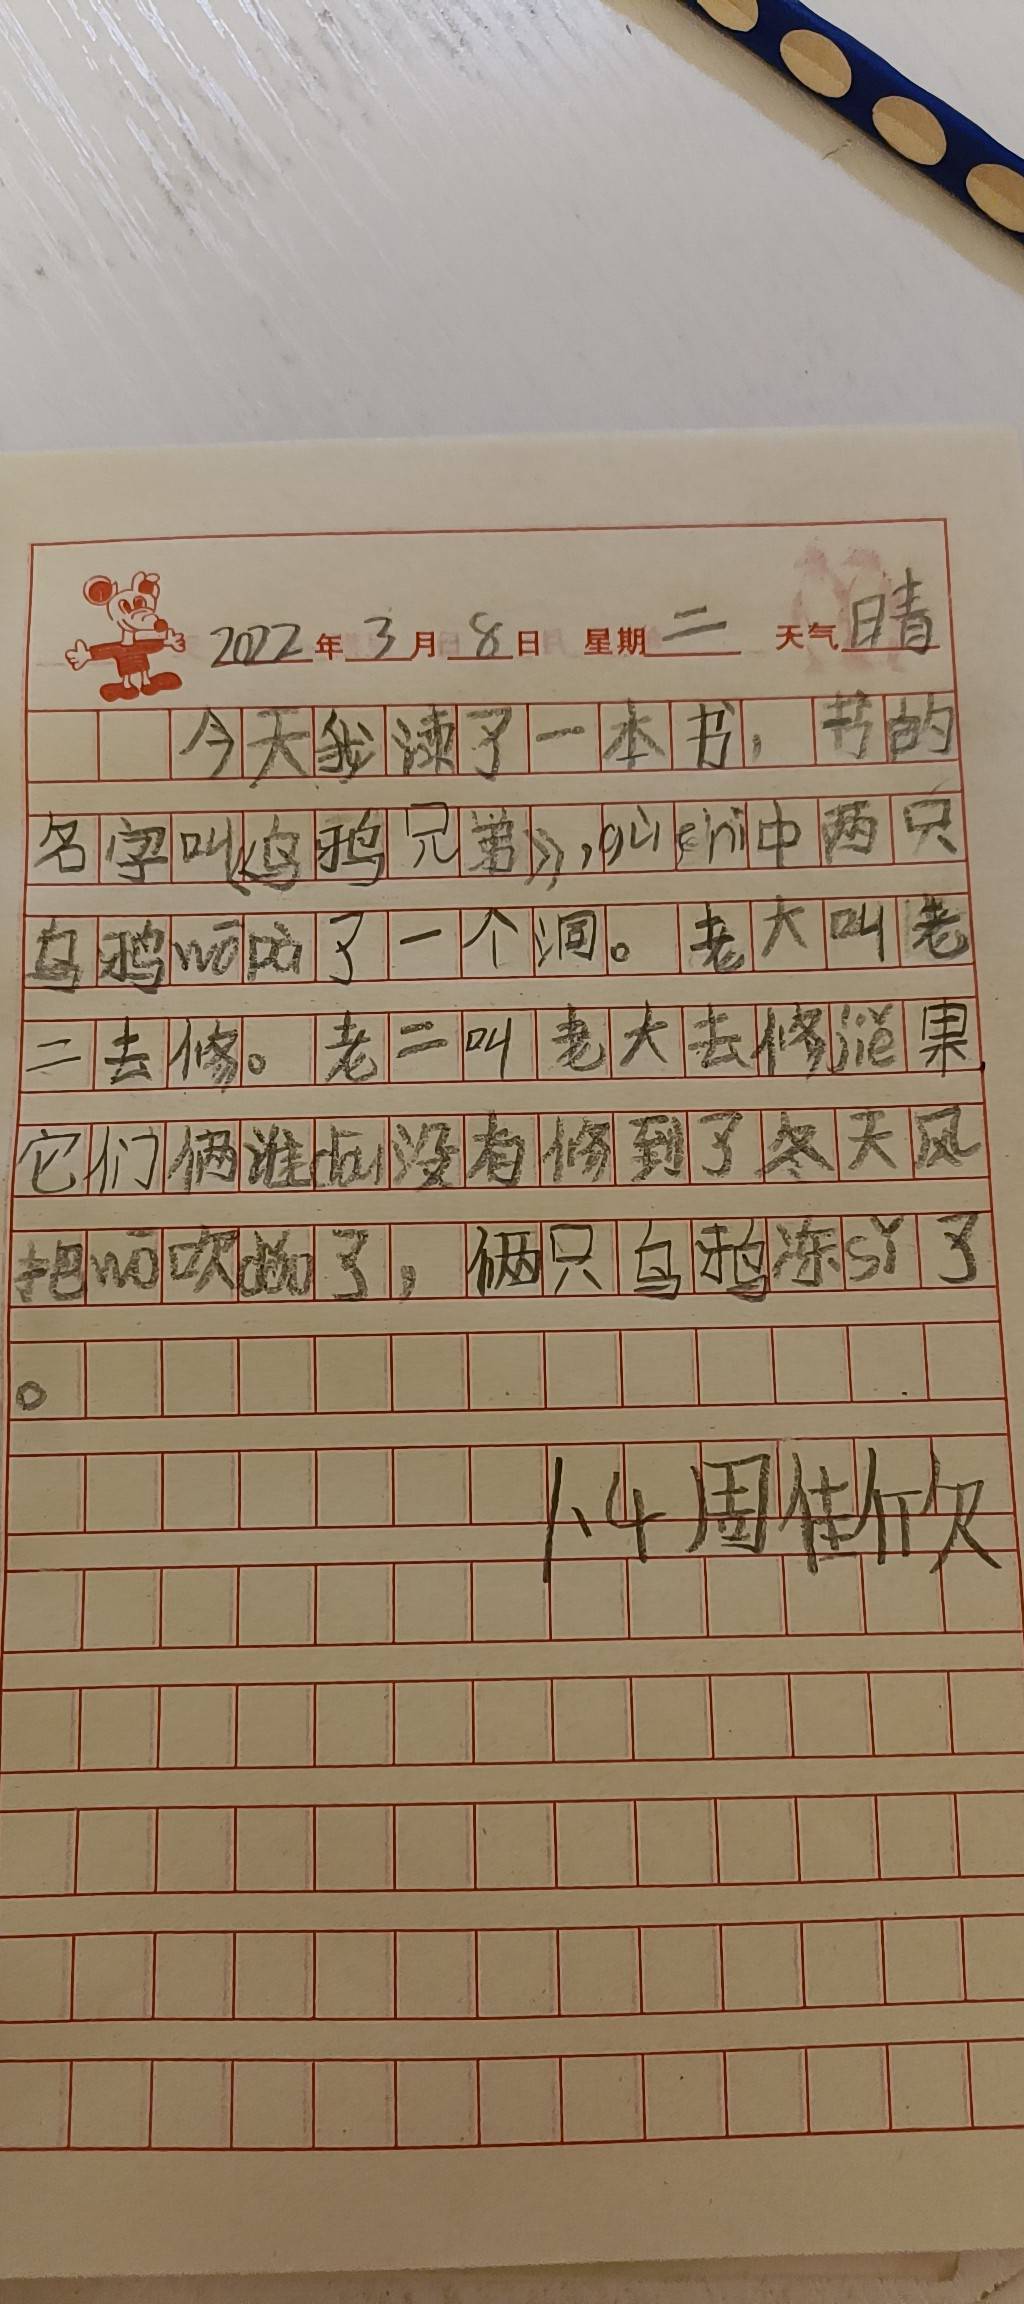 2022年3月8日 星期二 天气晴
今天我读了一本书，书的
名字叫《乌鸦兄弟》，gù shi中两只
乌鸦wō pò了一个洞。老大叫老
二去修。老二叫老大去修jié果
它们俩谁dōu没有修到了冬天风
把wō吹dǎo了，俩只乌鸦冻sǐ了
。
14周佳欣